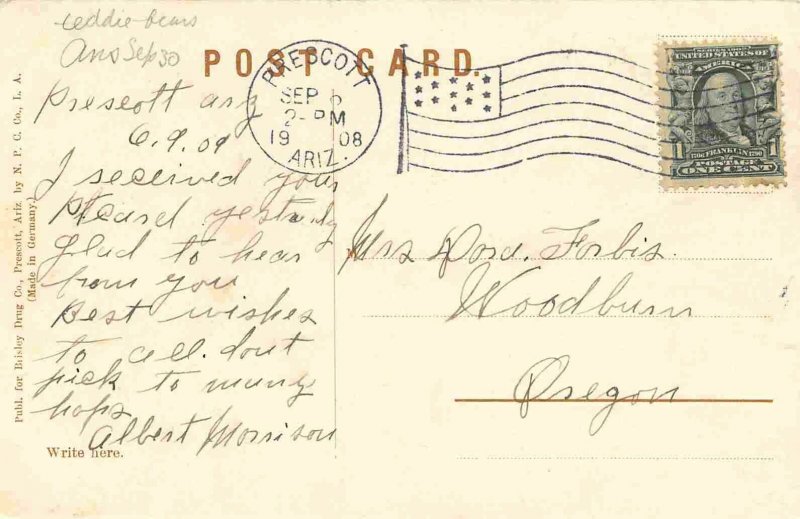 teddie-bears
Ans Sep 30
POST CARD.
PRESCOTT
SEP 6
2-PM
1908
ARIZ.
SERIES 1902
UNITED STATES OF
AMERICA
1706 FRANKLIN 1790
POSTAGE
1 ONE CENT 1
Prescott ariz
6.9.09
I received your
Pcard yesterdy
glad to hear
from you
Best wishes
to all. dont
pick to many
hops
Albert Morrison
Write here.
Mrs Dora. Forbis.
Woodburn
Oregon
Publ. for Brisley Drug Co., Prescott, Ariz by N. P. C. Co., L. A.
(Made in Germany.)